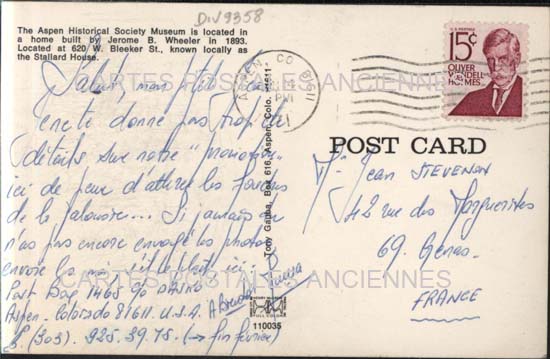 DIV9358
The Aspen Historical Society Museum is located in
a home built by Jerome B. Wheeler in 1893.
Located at 620 W. Bleeker St., known locally as
the Stallard House.
ASPEN, CO 81611
PM
U.S. POSTAGE
15¢
OLIVER
WENDELL
HOLMES
CARTES POSTALES ANCIENNES
POST CARD
Salut, mon
ne te donne pas trop de
détails sur notre
ici de peur d'attirer les foudres
de la jalousie... Si jamais tu
n'as pas encore envoyé les photos
envoie les moi ici
Post Box 1465 90
Aspen - Colorado 81611 - U.S.A.
(303). 925.39.75 (→ fin février)
Tony Gauba, Box 616, Aspen, Colo. 81611
110035
Mr Jean STEVENON
42 rue des Marguerites
69. Genas.
FRANCE
CARTES POSTALES ANCIENNES